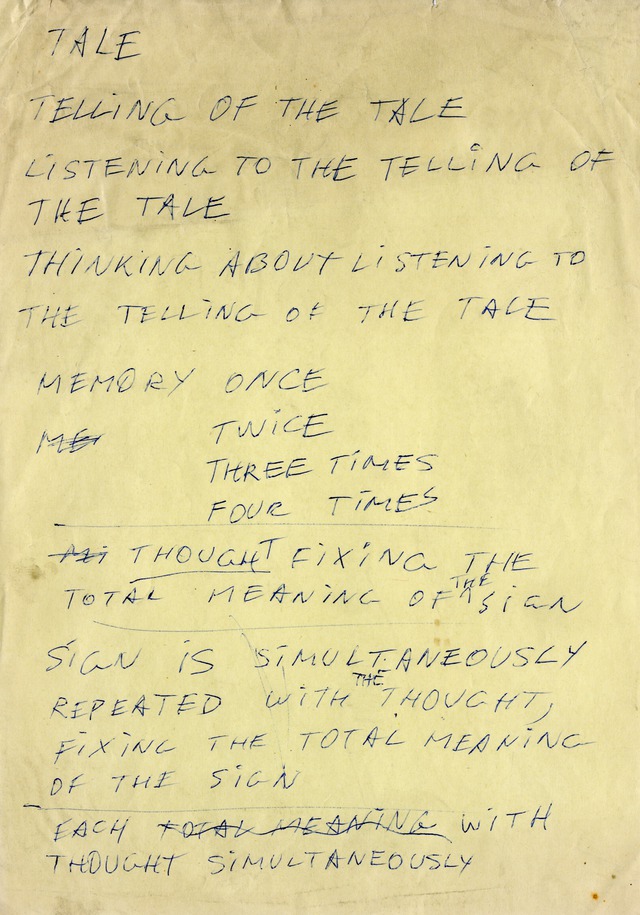 TALE
TELLING OF THE TALE
LISTENING TO THE TELLING OF
THE TALE
THINKING ABOUT LISTENING TO
THE TELLING OF THE TALE
MEMORY ONCE
ME TWICE
THREE TIMES
FOUR TIMES
THOUGHT FIXING THE
TOTAL MEANING OF THE SIGN
SIGN IS SIMULTANEOUSLY
REPEATED WITH THE THOUGHT,
FIXING THE TOTAL MEANING
OF THE SIGN
EACH TOTAL MEANING WITH
THOUGHT SIMULTANEOUSLY